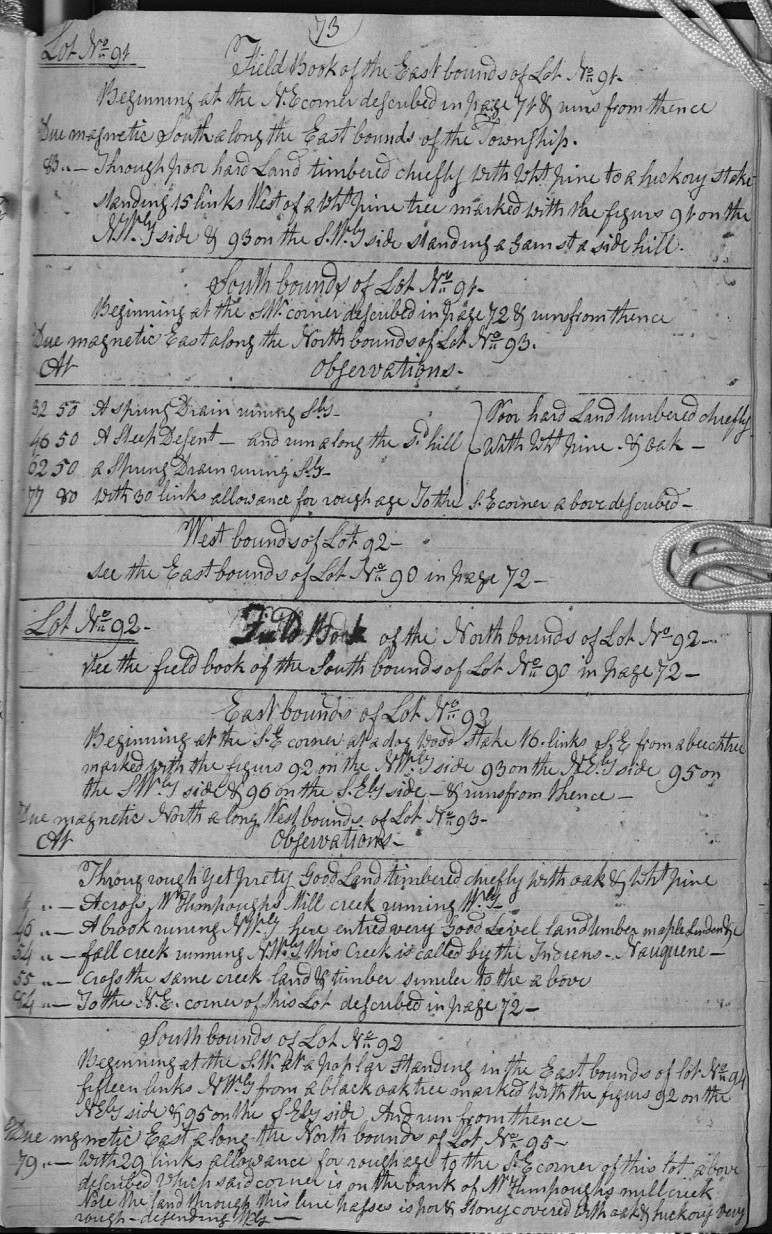 73
Lot No. 91
Field Book of the East bounds of Lot No. 91.
Beginning at the N.E corner described in page 71 & runs from thence
Due magnetic South along the East bounds of the Township.
83 .. — Through poor hard Land timbered chiefly with Wht. pine to a hickory stake
standing 15 links West of a Wht pine tree marked with the figurs 91 on the
N.W.ly side & 93 on the S.W.ly side standing against a side hill.
South bounds of Lot No. 91.
Beginning at the S.W. corner described in page 72 & runs from thence
Due magnetic East along the North bounds of Lot No. 93.
At Observations —
32 50 A Spring Drain runing S.ly — Poor hard Land timbered chiefly
46 50 A Steep Desent — and run along the Sd hill with Wht pine & oak —
62 50 a Spring Drain runing S.ly —
77 80 with 30 links allowance for roughage To the S.E corner above described —
West bounds of Lot 92 —
see the East bounds of Lot No. 90 in page 72 —
Lot No. 92 — Field Book of the North bounds of Lot No. 92 —
see the field book of the South bounds of Lot No. 90 in page 72 —
East bounds of Lot No. 92
Beginning at the S.E corner at a dog wood stake 16 links S.E from a beech tree
marked with the figurs 92 on the N.W.ly side 93 on the N.E.ly side 95 on
the S.W.ly side & 96 on the S.E.ly side — & runs from thence —
Due magnetic North along West bounds of Lot No. 93 —
At Observations —
Throug rough yet prety Good Land timbered chiefly with oak & Wht pine
.. — Across Wm Humpoughs Mill creek running W.ly
46 .. — A brook runing N.W.ly here entred very Good Level land timber maple Linden &c
54 .. — fall creek running N.W.ly this Creek is called by the Indiens — Nauquene —
55 .. — cross the same creek land & timber simuler to the above
84 .. — To the N.E. corner of this Lot described in page 72 —
South bounds of Lot No. 92
Beginning at the S.W. at a poplar standing in the East bounds of lot No. 94
fifteen links N.W.ly from a black oak tree marked with the figurs 92 on the
N.E.ly side & 95 on the S.E.ly side And run from thence —
Due mgnetic East along the North bounds of Lot No. 95 —
79 .. — with 29 links allowance for roughage to the S.E corner of this lot above
described which said corner is on the bank of Wm Humpoughs mill creek
Note the land through this line passes is poor & Stoney covered with oak & hickory very
rough — desending W.ly —